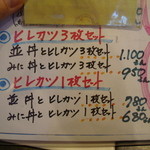 ◎ヒレカツ3枚セット
並丼とヒレカツ3枚セット 1,100
みに丼とヒレカツ3枚セット 950
◎ヒレカツ1枚セット
並丼とヒレカツ1枚セット 780
みに丼とヒレカツ1枚セット 680